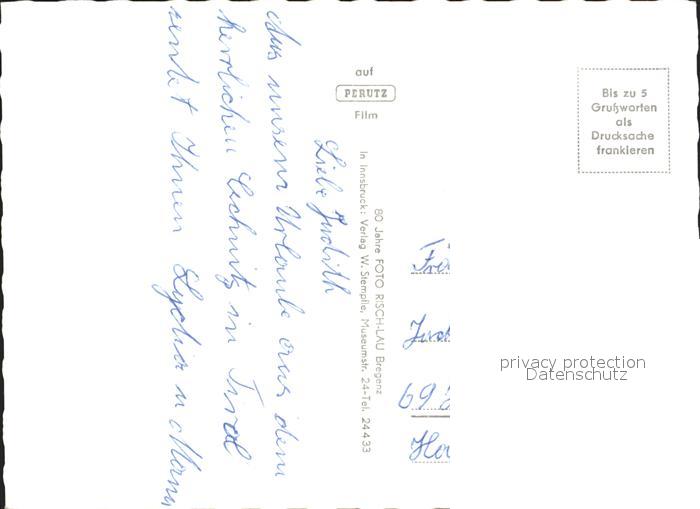 Liebe Judith
Aus unserm Urlaube aus dem
herrlichen in Tirol
sendet Ihnen Lydia u
auf
PERUTZ
Film
80 Jahre FOTO RISCH-LAU Bregenz
In Innsbruck: Verlag W. Stempfle, Museumstr. 24-Tel. 24433
Bis zu 5
Grußworten
als
Drucksache
frankieren
privacy protection
Datenschutz